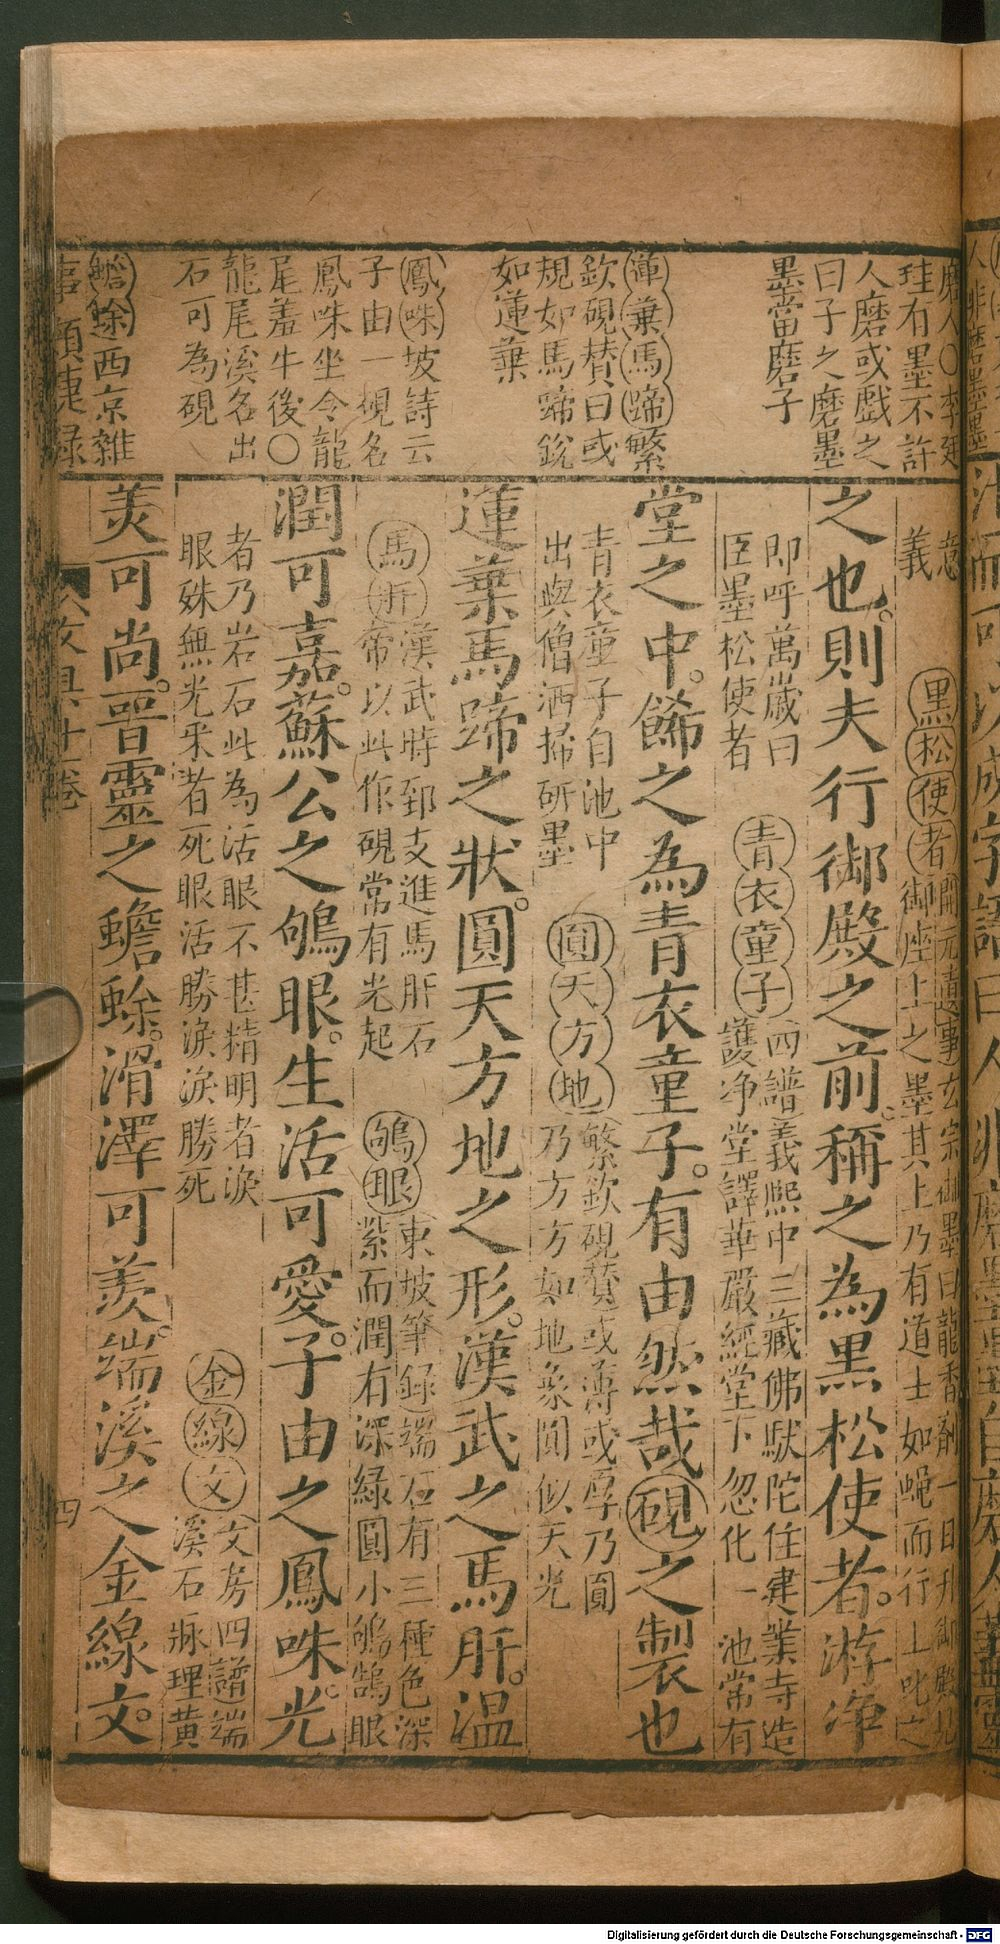 磨人〇李廷
珪有墨不許
人磨或戲之
曰子之磨墨
墨當磨子
蓮葉馬蹄繁
欽硯贊曰或
規如馬蹄銳
如蓮葉
鳳咮坡詩云
子由一硯名
鳳咮坐令龍
尾羞牛後〇
龍尾溪名出
石可為硯
蟾蜍西京雜
意
義
黑松使者開元遺事玄宗御墨曰龍香劑一日升御殿見
御座上之墨其上乃有道士如蠅而行上叱之
之也。則夫行御殿之前。稱之為黑松使者。游淨
即呼萬歲曰
臣墨松使者
青衣童子四譜義熙中三藏佛馱陀住建業寺造
護净堂譯華嚴經堂下忽化一池常有
堂之中。飾之為青衣童子。有由然哉硯之製也
青衣童子自池中
出與僧洒掃研墨
圓天方地繁欽硯贊或薄或厚乃圓
乃方方如地象圓似天光
蓮葉馬蹄之狀。圓天方地之形。漢武之馬肝。温
馬肝漢武時郅支進馬肝石
帝以此作硯常有光起
鴝眼東坡筆録端石有三種色深
紫而潤有深緑圓小鴝鵒眼
潤可嘉。蘇公之鴝眼。生活可愛。子由之鳳咮。光
者乃岩石此為活眼不甚精明者淚
眼殊無光采者死眼活勝淚淚勝死
金線文文房四譜端
溪石脉理黄
美可尚。晋靈之蟾蜍。滑澤可羨。端溪之金線文。
四
Digitalisierung gefördert durch die Deutsche Forschungsgemeinschaft - DFG